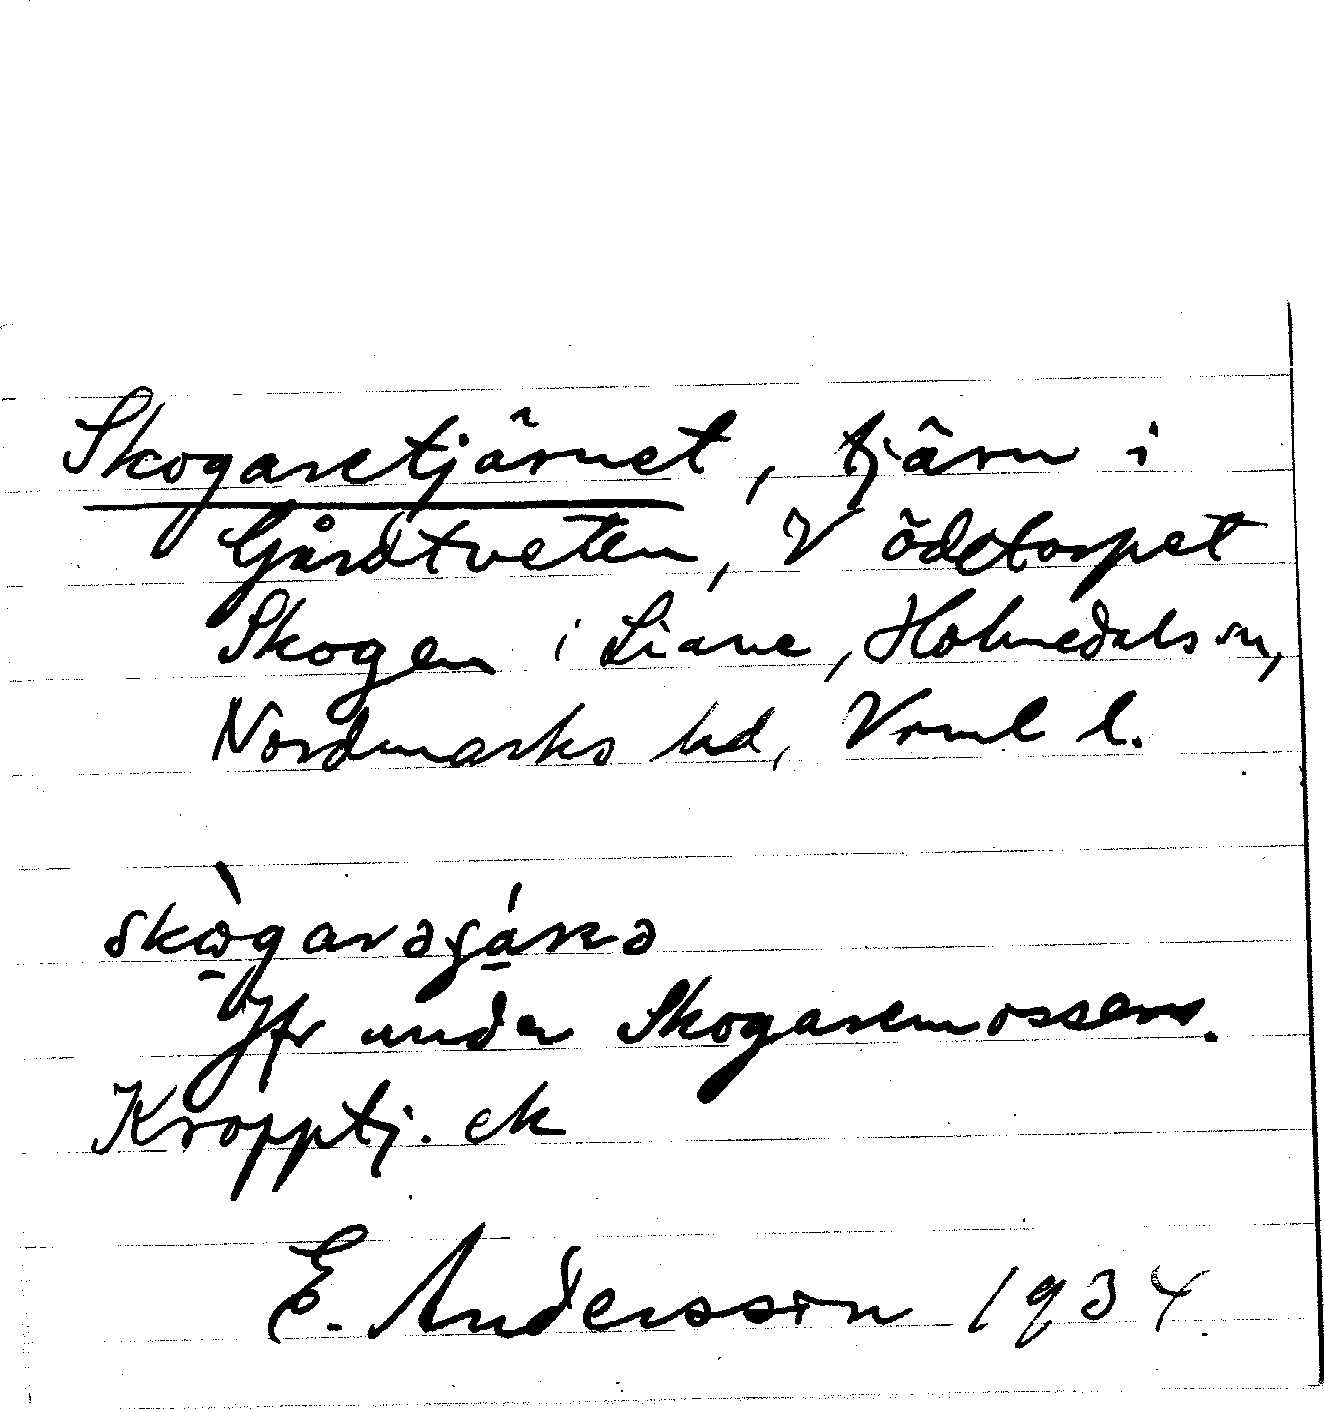 Skogaretjärnet, tjärn i
Gårdtveten, V ödetorpet
Skogen i Liane, Holmedals sn,
Nordmarks hd, Vrml l.
Jfr under Skogaremossen.
Kropptj. ek
E. Andersson 1934